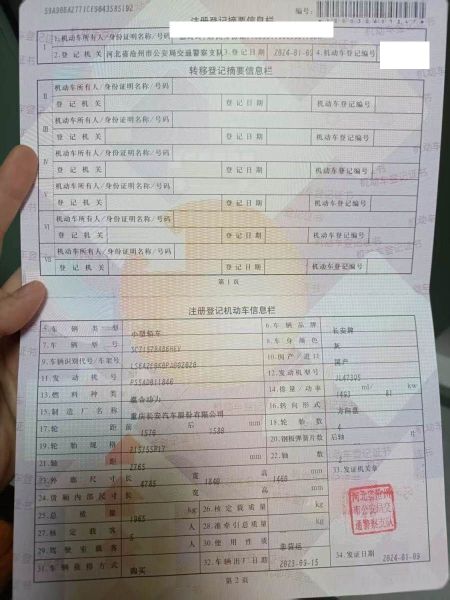 注册登记摘要信息栏
编号:
Ⅰ 1.机动车所有人/身份证明名称/号码
2.登记机关 河北省沧州市公安局交通警察支队 3.登记日期 2024-01-09 4.机动车登记编号
转移登记摘要信息栏
Ⅱ 机动车所有人/身份证明名称/号码
登记机关 登记日期 机动车登记编号
Ⅲ 机动车所有人/身份证明名称/号码
登记机关 登记日期 机动车登记编号
Ⅳ 机动车所有人/身份证明名称/号码
登记机关 登记日期 机动车登记编号
Ⅴ 机动车所有人/身份证明名称/号码
登记机关 登记日期 机动车登记编号
Ⅵ 机动车所有人/身份证明名称/号码
登记机关 登记日期 机动车登记编号
Ⅶ 机动车所有人/身份证明名称/号码
登记机关 登记日期 机动车登记编号
第1页
注册登记机动车信息栏
5.车辆类型 小型轿车 6.车辆品牌 长安牌
7.车辆型号 8.车身颜色 灰
9.车辆识别代号/车架号 10.国产/进口 国产
11.发动机号 12.发动机型号 JL473Q5
13.燃料种类 混合动力 14.排量/功率 1493 ml/ 81 kw
15.制造厂名称 重庆长安汽车股份有限公司 16.转向形式 方向盘
17.轮距 前 1576 后 1588 mm 18.轮胎数 4
19.轮胎规格 215/55R17 20.钢板弹簧片数 后轴 片
21.轴距 2765 mm 22.轴数 2
23.外廓尺寸 长 4785 宽 1840 高 1460 mm 33.发证机关章
24.货厢内部尺寸 长 宽 高 mm
25.总质量 1965 kg 26.核定载质量 kg
27.核定载客 5 人 28.准牵引总质量 kg
29.驾驶室载客 人 30.使用性质 非营运
31.车辆获得方式 购买 32.车辆出厂日期 2023-09-15 34.发证日期 2024-01-09
河北省沧州市公安局交通警察支队
第2页